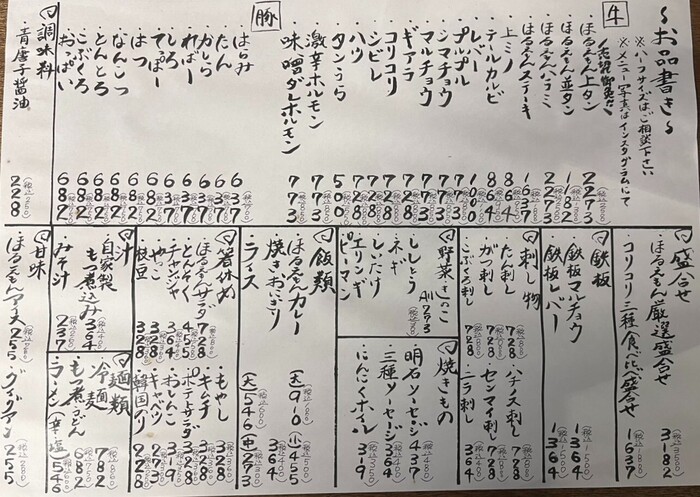 〜お品書き〜
※ハーフサイズはご相談下さい
※メニュー写真はインスタグラムにて
牛
ほるえもん上タン 2273
ほるえもん並タン 1182
ほるえもんハラミ 2273
ほるえもんステーキ 1637
上ミノ 864
テールカルビ 864
レバー 1000
プルプル 728
シマチョウ 773
マルチョウ 773
ギアラ 728
コリコリ 728
シビレ 728
ハツ 728
タンうら 5
激辛ホルモン 773
味噌ダレホルモン 773
豚
はらみ 637
たん 637
かしら 637
ればー 637
しろ 637
てっぽー
はつ
なんこつ 682
とんとろ 682
こぶくろ 682
おっぱい 682
調味料
青唐子醤油 228
盛合せ
ほるえもん厳選盛合せ 3182
コリコリ三種食べ比べ盛合せ 1637
鉄板
鉄板マルチョウ 1364
鉄板レバー 1364
刺し物
たん刺し 728
がつ刺し 728
こぶくろ刺し 728
ハチノス刺し 728
センマイ刺し 728
ミノ刺し 728
野菜・きのこ
All 273
ししとう
ネギ
しいたけ
エリンギ
ピーマン
焼きもの
明石ソーセージ 437
三種ソーセージ 364
にんにくホイル 319
飯類
ほるえもんカレー (大)910 (小)455
焼きおにぎり 364
ライス (大)546 (中)273
箸休め
ほるえもんサラダ 728
とんそく 455
チャンジャ 364
やっこ 328
枝豆 328
もやし 328
キムチ 328
ポテトサラダ 328
おしんこ 319
キャベツ 228
韓国のり 228
汁
自家製もつ煮込み 364
みそ汁 237
麺類
冷麺 782
もつ煮うどん 682
ラーメン (辛・塩) 546
甘味
ほるえもんアイス 255